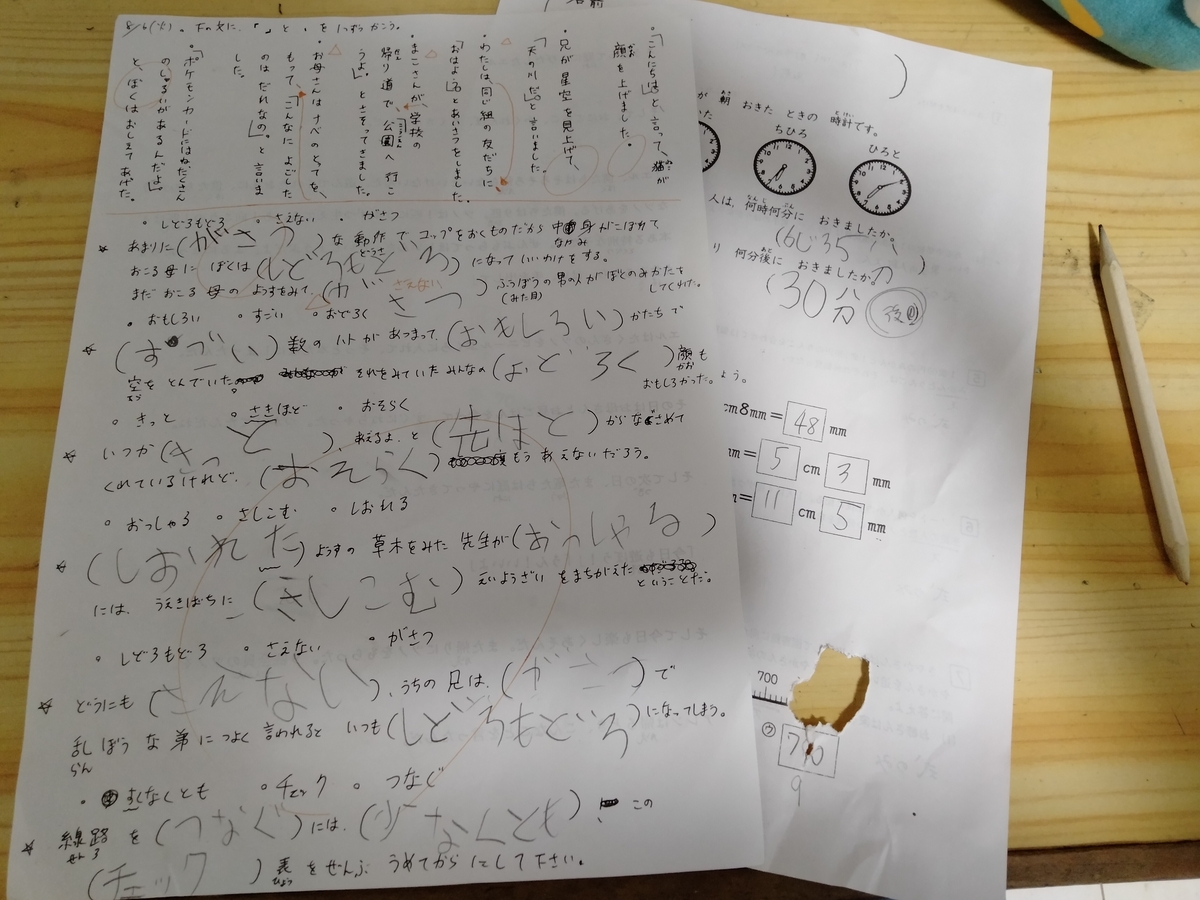 8/6(火)。下の文に、「」と、をつけましょう。
・「こんにちは。」と言って、猫が
顔を上げました。
・兄が星空を見上げて、
「天の川だ。」と言いました。
・わたしは、同じ組の友だちに、
「おはよう。」とあいさつをしました。
・まこさんが、学校の
帰り道で、「公園へ行こ
うよ。」とさそってきました。
・お母さんはナベのとってを、
もって、「こんなによごした
のはだれなの。」と言いま
した。
・「ポケモンカードにはたくさん
のしゅるいがあるんだよ。」
と、ぼくはおしえてあげた。
・しどろもどろ ・さえない ・がさつ
☆ あまりに(がさつ)な動作でコップをおくものだから中身がこぼれて
おこる母にぼくは(しどろもどろ)になっていいわけをする。
まだおこる母のようすをみて、(がさつ)ふうぼうの男の人がぼくのみかたを
さえない
(みた目)
してくれた。
・おもしろい ・すごい ・おどろく
☆ (すごい)数のハトがあつまって、(おもしろい)かたちで
空をとんでいた。それをみていたみんなの(おどろく)顔も
おもしろかった。よう。
・きっと ・さきほど ・おそらく
☆ いつか(きっと)、あえるよ、と(先ほど)からなぐさめて
くれているけれど、(おそらく)もうあえないだろう。
・おっしゃる ・さしこむ ・しおれる
☆ (しおれた)ようすの草木をみた先生が(おっしゃる)
には、うえきばちに(さしこむ)えいようざいをまちがえたということだ。
・しどろもどろ ・さえない ・がさつ
☆ どうにも(さえない)、うちの兄は、(がさつ)で
乱ぼうな弟につよく言われるといつも(しどろもどろ)になってしまう。
らん
・すくなくとも ・チェック ・つなぐ
☆ 線路を(つなぐ)には、(少なくとも)、この
せんろ
(チェック)表をぜんぶうめてからにして下さい。
ひょう
名前
が朝おきたときの時計です。
ちひろ
ひろと
人は、何時何分におきましたか。
(6じ35ふん)
何分後におきましたか。
(30分後)
cm8mm=48mm
mm=5cm3mm
=11cm5mm
700
ウ
790
9